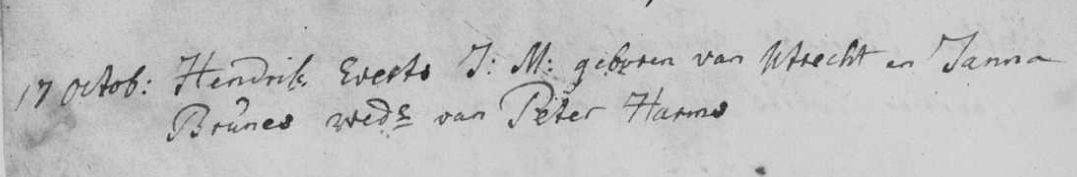 17 Octob: Hendrik Everts J: M: geboren van Utrecht en Janna
Brunes wedr van Peter Harms